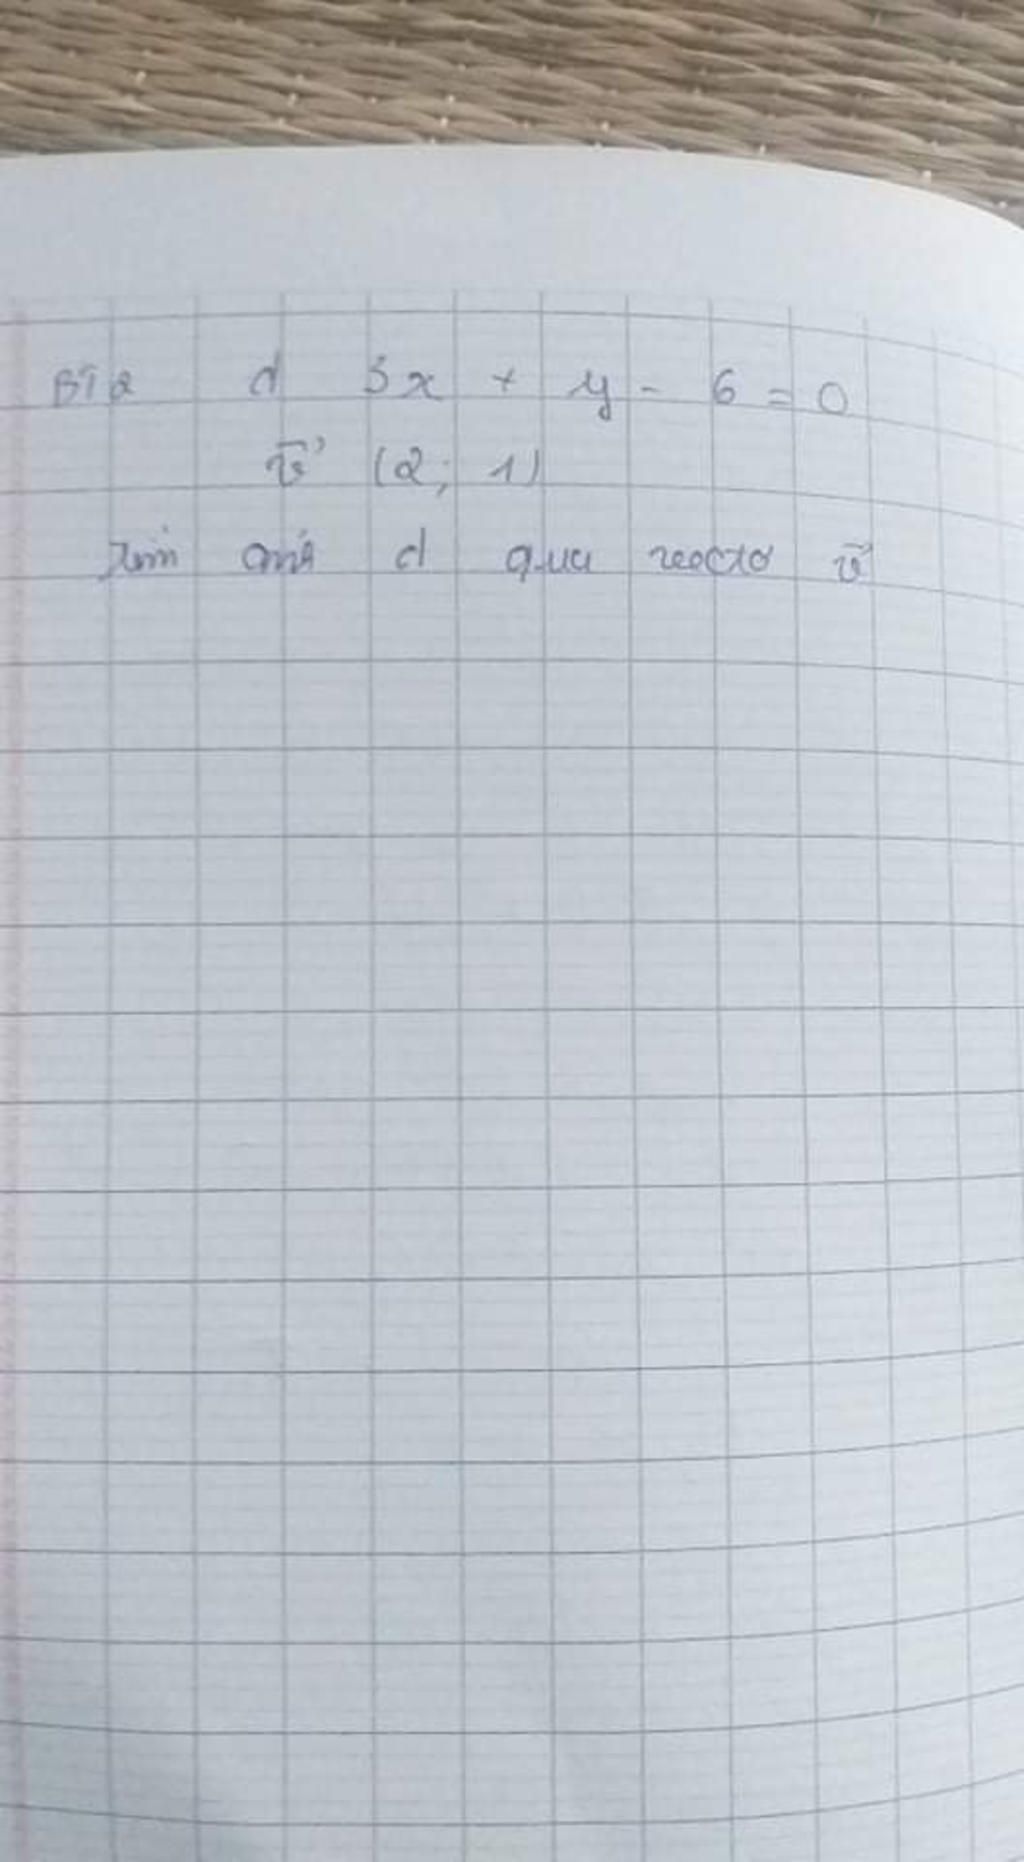 BT2 d 3x + y - 6 = 0
v⃗ (2; 1)
Tìm ảnh d qua vecto v⃗